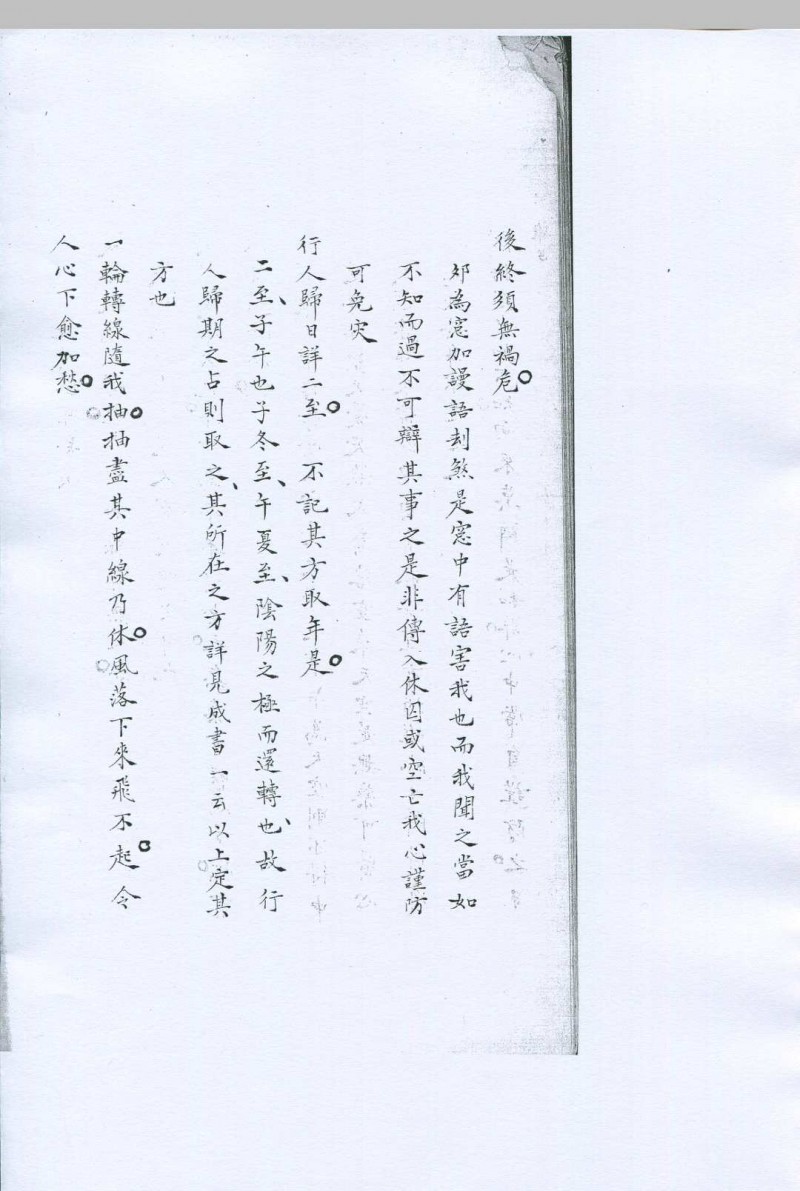 後終須無禍危。
卯為窓加謾語刦煞是窓中有語害我也而我聞之當如
不知而過不可辯其事之是非傳入休囚或空亡我心謹防
可免灾
行人歸日詳二至。不記其方取年是。
二至、子午也子冬至、午夏至、陰陽之極而還轉也、故行
人歸期之占則取之、其所在之方詳見成書一云以上定其
方也
一輪轉線隨我抽。抽盡其中線乃休。風落下來飛不起。令
人心下愈加愁。